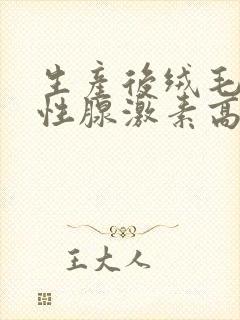 生产后绒毛
性腺激素高
王大人